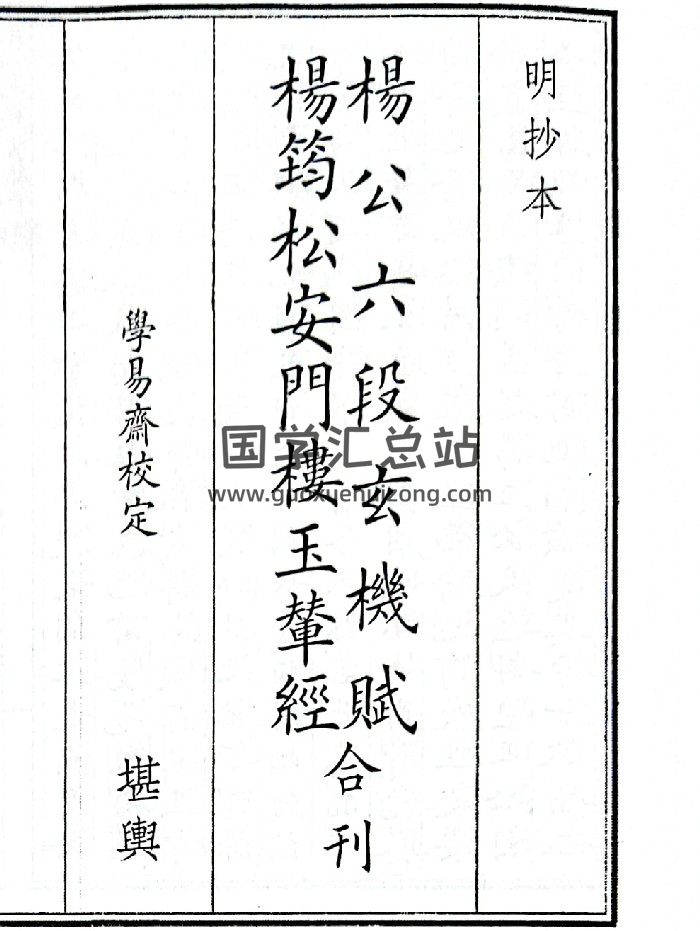 明抄本
楊公六段玄機賦
楊筠松安門樓玉輦經
合刊
學易齋校定
堪輿
国学汇总站
www.guoxuehuizong.com